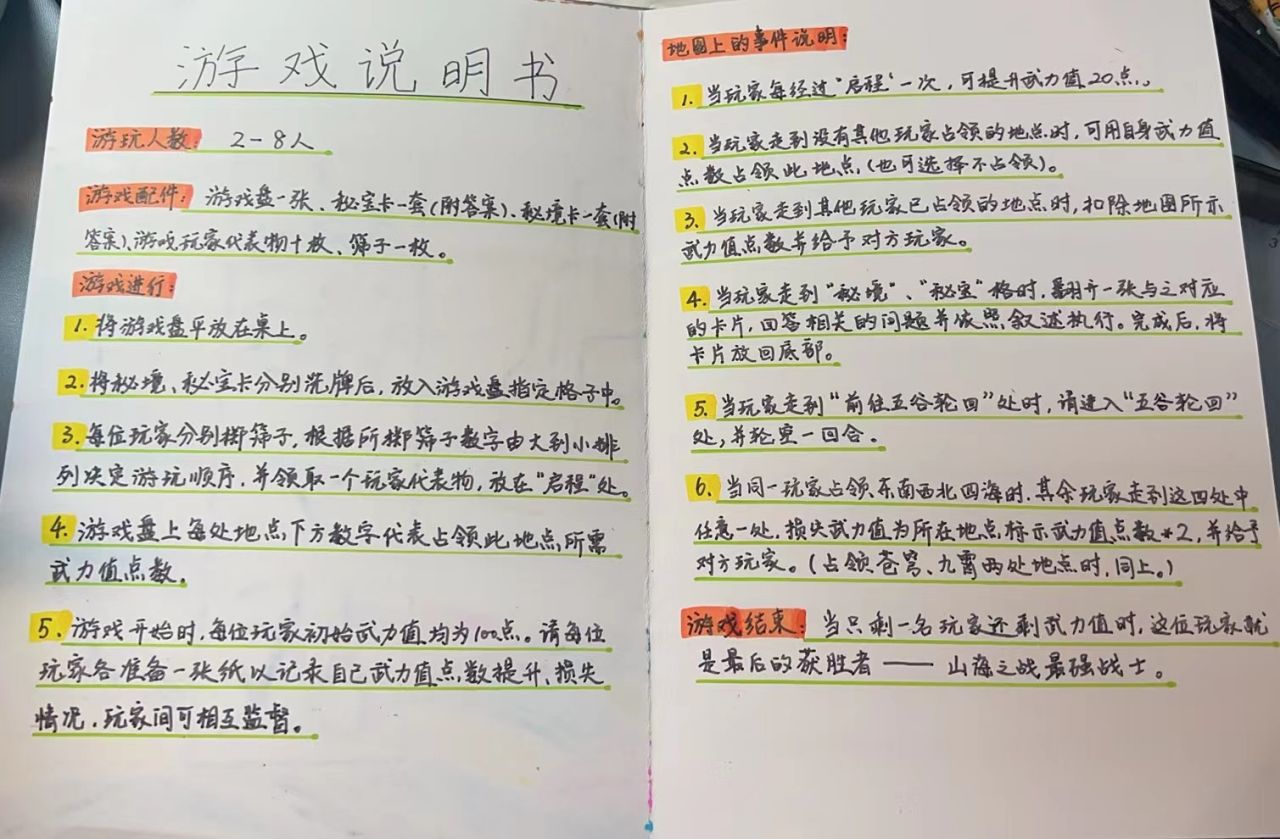 游戏说明书
游玩人数： 2-8人
游戏配件： 游戏盘一张、秘宝卡一套(附答案)、秘境卡一套(附
答案)、游戏玩家代表物十枚、筛子一枚。
游戏进行：
1. 将游戏盘平放在桌上。
2. 将秘境、秘宝卡分别洗牌后，放入游戏盘指定格子中。
3. 每位玩家分别掷筛子，根据所掷筛子数字由大到小排
列决定游玩顺序，并领取一个玩家代表物，放在"启程"处。
4. 游戏盘上每处地点下方数字代表占领此地点所需
武力值点数。
5. 游戏开始时，每位玩家初始武力值均为100点。请每位
玩家各准备一张纸以记录自己武力值点数提升、损失
情况，玩家间可相互监督。
地图上的事件说明：
1. 当玩家每经过"启程"一次，可提升武力值20点。
2. 当玩家走到没有其他玩家占领的地点时，可用自身武力值
点数占领此地点(也可选择不占领)。
3. 当玩家走到其他玩家已占领的地点时，扣除地图所示
武力值点数并给予对方玩家。
4. 当玩家走到"秘境"、"秘宝"格时，翻开一张与之对应
的卡片，回答相关的问题并依照叙述执行。完成后，将
卡片放回底部。
5. 当玩家走到"前往五谷轮回"处时，请进入"五谷轮回"
处，并轮空一回合。
6. 当同一玩家占领东南西北四海时，其余玩家走到这四处中
任意一处，损失武力值为所在地点标示武力值点数*2，并给予
对方玩家。(占领苍穹、九霄两处地点时，同上。)
游戏结束： 当只剩一名玩家还剩武力值时，这位玩家就
是最后的获胜者——山海之战最强战士。